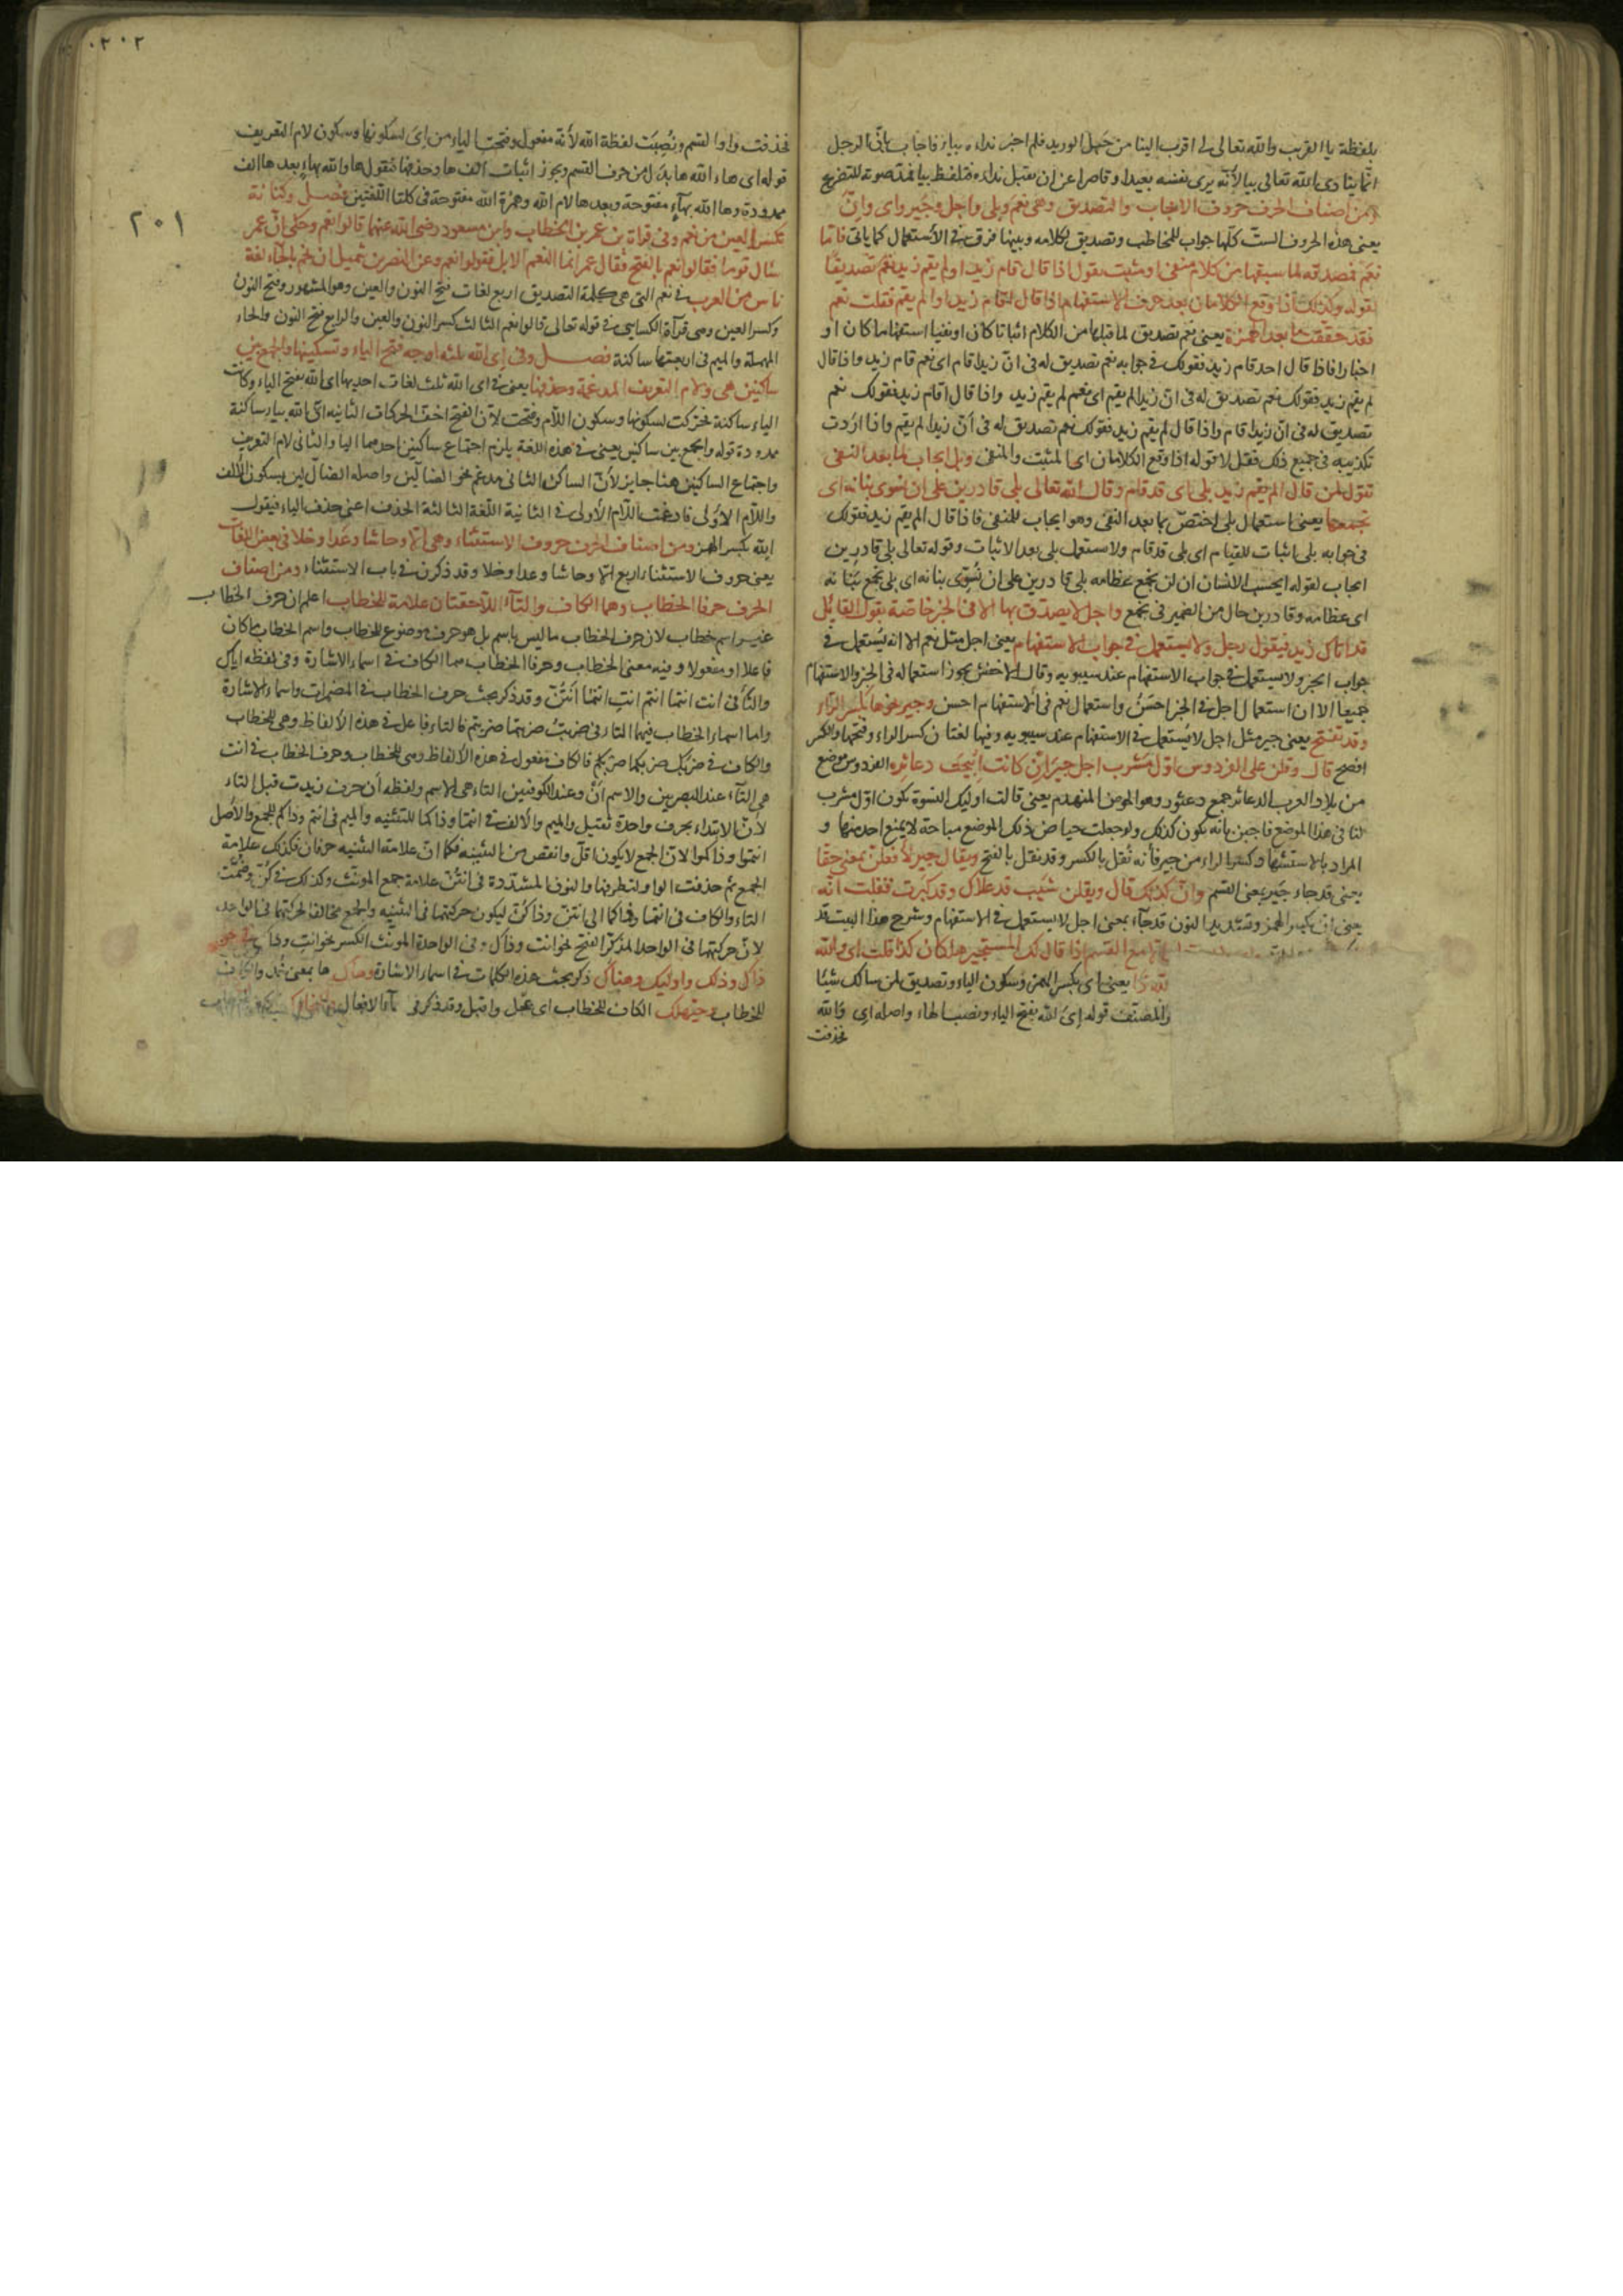 بلفظة يا القريب والله تعالى اقرب الينا من حبل الوريد فلم اخير نداءه بيا فاجاب بانّ الرجل
انّما ينادى الله تعالى بيا لأنّه يرى نفسه بعيدا وقاصرا عن ان يقبل نداءه فتلفظ بيا لمد صوته للتضرع
ومن اصناف الحرف حروف الايجاب والتصديق وهى نعم وبلى واجل وجير واى وانّ
يعنى هذه الحروف الستّ كلّها جواب للمخاطب وتصديق لكلامه وبينها فرق فى الاستعمال كما ياتى فامّا
نعم فمصدقة لما سبقها من كلام منفى او مثبت يقول اذا قال قام زيد او لم يقم زيد نعم تصديقا
لقوله وكذلك اذا وقع الكلامان بعد حرف الاستفهام اذا قال اقام زيد او الم يقم فقلت نعم
فقد حققت ما بعد الهمزة يعنى نعم تصديق لما قبلها من الكلام اثباتا كان او نفيا استفهاما كان او
اخبارا فاذا قال احد قام زيد فقولك فى جوابه نعم تصديق له فى انّ زيدا قام اى نعم قام زيد واذا قال
لم يقم زيد فقولك نعم تصديق له فى ان زيدا لم يقم اى نعم لم يقم زيد واذا قال اقام زيد فقولك نعم
تصديق له فى انّ زيدا قام واذا قال الم يقم زيد فقولك نعم تصديق له فى انّ زيدا لم يقم واذا اردت
تكذيبه فى جميع ذلك فقل لا قوله اذا وقع الكلامان اى المثبت والمنفى وبلى ايجاب لما بعد النفى
تقول لمن قال الم يقم زيد بلى اى قد قام وقال الله تعالى بلى قادرين على ان نسوى بنانه اى
نجمعها يعنى استعمال بلى اختصّ بما بعد النفى وهو ايجاب للمنفى فاذا قال الم يقم زيد فقولك
فى جوابه بلى اثبات للقيام اى بلى قد قام ولا يستعمل بلى بعد الاثبات وقوله تعالى بلى قادرين
ايجاب لقوله ايحسب الانسان ان لن نجمع عظامه بلى قادرين على ان نسوى بنانه اى بلى نجمع بنانه
اى عظامه وقادرين حال من الضمير فى نجمع واجل لا يصدّق بها الا فى الخبر خاصّة يقول القائل
قد اتاك زيد فيقول اجل ولا يستعمل فى جواب الاستفهام يعنى اجل مثل نعم الا انه يستعمل فى
جواب الخبر ولا يستعمل فى جواب الاستفهام عند سيبويه وقال الاخفش يجوز استعماله فى الخبر والاستفهام
جميعا الا ان استعمال اجل فى الخبر احسن واستعمال نعم فى الاستفهام احسن وجير نحوها بكسر الراء
وقد تفتح يعنى جير مثل اجل لا يستعمل فى الاستفهام عند سيبويه وفيها لغتان كسر الراء وفتحها والكسر
افصح قال وقلن على الفردوس اوّل مشرب اجل جير ان كانت ابيحت دعاثره الفردوس موضع
من بلاد العرب الدعاثر جمع دعثور وهو الحوض المنهدم يعنى قالت اوليك النسوة يكون اوّل مشرب
لنا فى هذا الموضع فاجبن بانّه يكون كذلك ولو جعلت حياض ذلك الموضع مباحة لا يمنع احد منها و
المراد بالاستشهاد كسر الراء من جير فأنه نقل بالكسر وقد نقل بالفتح ويقال جير لأفعلنّ بمعنى حقّا
يعنى قد جاء جير بمعنى القسم وانّ كذلك قال ويقلن شيب قد علاك وقد كبرت فقلت انّه
يعنى انّ بكسر الهمزة وتشديد النون قد جاء بمعنى اجل لا يستعمل فى الاستفهام وشرح هذا البيت قد
الا مع القسم اذا قال لك المستخبر هل كان كذا قلت اى والله
يعنى اى بكسر الهمزة وسكون الياء وتصديق لمن سالك شيئا
والمصنف قوله اىَ الله بفتح الياء ونصب الهاء واصله اى والله
فحذفت
٢٠٢
٢٠١
فحذفت واو القسم ونُصِبَت لفظة الله لأنّه مفعول وفتحت الياء من اىَ لسكونها وسكون لام التعريف
قوله اى هاء الله ها بدل من حرف القسم ويجوز اثبات الف ها وحذفها فتقول ها والله بهاءٍ بعدها الف
ممدودة وها الله بهاءٍ مفتوحة وبعدها لام الله وهمزة الله مفتوحة فى كلتا اللغتين فصل وكنانة
تكسر العين من نعم وفى قراة بن عمر بن الخطاب وابن مسعود رضى الله عنهما قالوا نعم وحكى انّ عمر
سال قوما فقالوا نعم بالفتح فقال عمر انما النعم الابل فقولوا نعم وعن النضر بن شميل ان نحم بالحاء لغة
ناس من العرب فى نعم التى هى كلمة التصديق اربع لغات فتح النون والعين وهو المشهور وفتح النون
وكسر العين وهى قرآة الكسائى فى قوله تعالى قالوا نعم الثالث كسر النون والعين والرابع فتح النون والحاء
المهملة والميم فى اربعتها ساكنة فصل وفى اى الله ثلثة اوجه فتح الياء وتسكينها والجمع بين
ساكنين هى ولام التعريف المدغمة وحذفها يعنى فى اى الله ثلث لغات احديها اى الله بفتح الياء وكانت
الياء ساكنة فحركت لسكونها وسكون اللام وفتحت لانّ الفتح اخفّ الحركات الثانيه اى الله بياء ساكنة
ممدودة قوله والجمع بين ساكنين يعنى فى هذه اللغة يلزم اجتماع ساكنين احدهما اليا والثانى لام التعريف
واجتماع الساكنين هنا جايز لأنّ الساكن الثانى مدغم نحو الضالّين واصله الضاللين بسكون الالف
واللام الاولى فادغمت اللام الاولى فى الثانية اللغة الثالثة الحذف اعنى حذف الياء فيقول
اِلله بكسر الهمز ومن اصناف الحرف حروف الاستثناء وهى الا وحاشا وعدا وخلا فى بعض اللغات
يعنى حروف الاستثناء اربع الا وحاشا وعدا وخلا وقد ذكرن فى باب الاستثناء ومن اصناف
الحرف حرفا الخطاب وهما الكاف والتاء اللاحقتان علامة للخطاب اعلم ان حرف الخطاب
غير اسم خطاب لان حرف الخطاب ما ليس باسم بل هو حرف موضوع للخطاب واسم الخطاب ما كان
فاعلا او مفعولا وفيه معنى الخطاب وحرفا الخطاب هما الكاف فى اسماء الاشارة وفى لفظه اياك
والتا فى انت انتما انتم انتِ انتما انتنّ وقد ذكر بحث حرف الخطاب فى المضمرات واسماء الاشارة
واما اسماء الخطاب فيها التاء فى ضربتَ ضربتما ضربتم فالتاء فاعل فى هذه الالفاظ وهى للخطاب
والكاف فى ضربك ضربكما ضربكم فالكاف مفعول فى هذه الالفاظ وهى للخطاب وحرف الخطاب فى انت
هى التاء عند البصريين والاسم انْ وعند الكوفيين التاء هى الاسم ولفظه أن حرف زيدت قبل التاء
لأنّ الابتداء بحرف واحدة ثقيل والميم والالف فى انتما وذاكما للتثنيه والميم فى انتم وذاكم للجمع والأصل
انتموا وذاكموا لانّ الجمع لا يكون اقلّ وانقص من التثنيه فكما انّ علامة التثنيه حرفان فكذلك علامة
الجمع ثم حذفت الواو لتطرفها والنون المشدّدة فى انتنّ علامة جمع المونّث وكذلك فى كنّ وضمّت
التاء والكاف فى انتما وذاكما الى انتنّ وذاكنّ ليكون حركتها فى التثنيه والجمع مخالفا لحركتها فى الواحد
لانّ حركتها فى الواحد المذكّر الفتح نحو انت وذاك وفى الواحدة المونث الكسر نحو انتِ وذاكِ فى نحو
ذاك وذلك واوليك وهناك ذكر بحث هذه الكلمات فى اسماء الاشارة وهاك ها بمعنى خذ والكاف
للخطاب وحيهلك الكاف للخطاب اى عجّل واقبل وقد ذكر فى اسماء الافعال